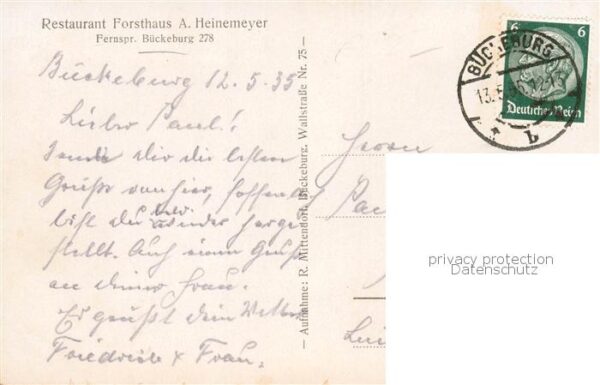 Restaurant Forsthaus A. Heinemeyer
Fernspr. Bückeburg 278
Bückeburg 12.5.35
Lieber Paul!
Sende dir die besten
Grüße von hier, hoffentl.
bist du bald wieder herge
stellt. Auch einen Gruß
an deine Frau.
Es grüßt dein Vetter
Friedrich & Frau.
– Aufnahme: R. Mittendorf, Bückeburg, Wallstraße Nr. 75 –
Herrn
6 6
Deutsches Reich
BÜCKEBURG
13.5.
b
privacy protection
Datenschutz